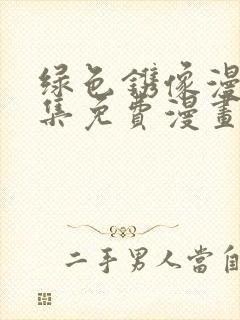 绿色鐫像漫
集免費漫畫
二手男人當自